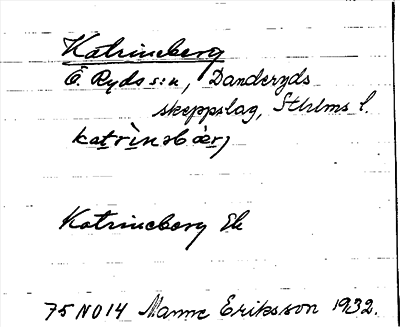 Katrineberg
Ö. Ryds sn, Danderyds
skeppslag, Sthlms l.
katrìnəbær)
Katrineberg Ek
75 NO 14 Manne Eriksson 1932.